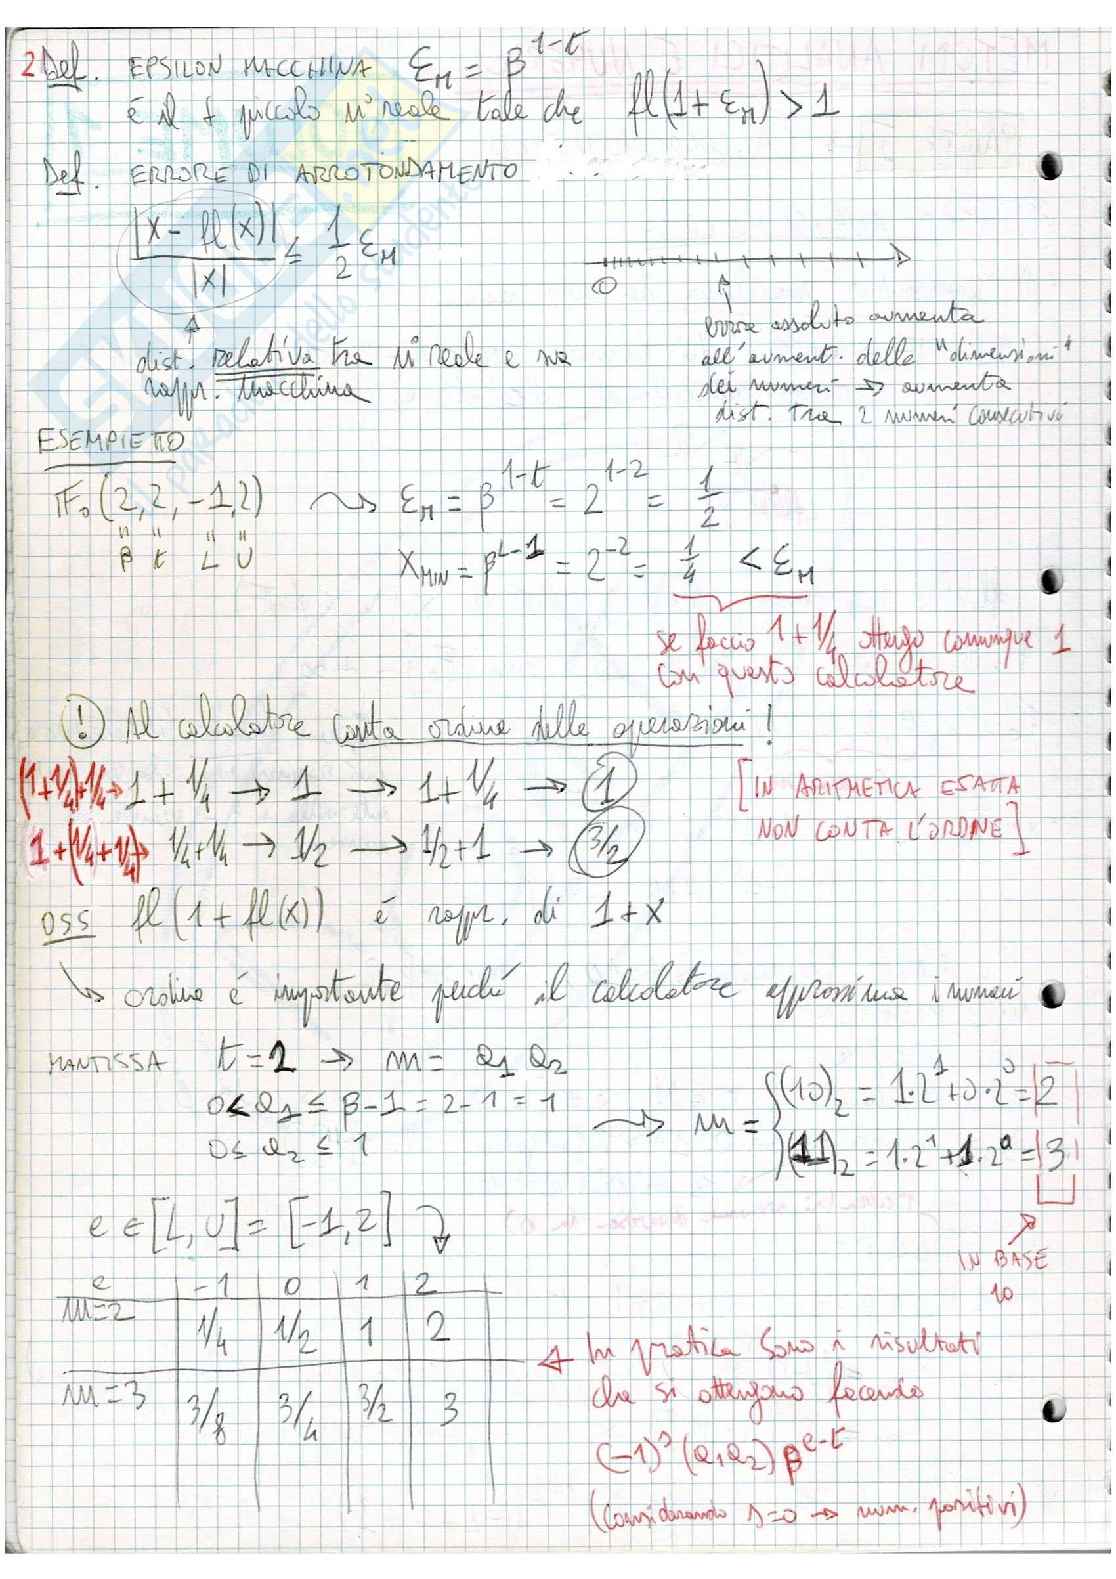 2 Def. EPSILON MACCHINA ε_M = β^{1-t}
é il + piccolo n° reale tale che fl(1+ε_M) > 1
Def. ERRORE DI ARROTONDAMENTO
|x - fl(x)| / |x| ≤ 1/2 ε_M
0
dist. relativa tra n° reale e sua
rappr. macchina
errore assoluto aumenta
all'aument. delle "dimensioni"
dei numeri → aumenta
dist. tra 2 numeri consecutivi
ESEMPIETTO
F₀(2, 2, -1, 2) ⇝ ε_M = β^{1-t} = 2^{1-2} = 1/2
" " " "
β t L U
x_MIN = β^{L-1} = 2^{-2} = 1/4 < ε_M
se faccio 1+1/4 ottengo comunque 1
con questo calcolatore
(!) Al calcolatore conta ordine delle operazioni!
(1+1/4)+1/4 → 1 + 1/4 → 1 → 1+1/4 → 1
1+(1/4+1/4) → 1/4+1/4 → 1/2 → 1/2+1 → 3/2
[IN ARITMETICA ESATTA
NON CONTA L'ORDINE]
OSS fl(1+fl(x)) é rappr. di 1+x
↳ ordine é importante perché il calcolatore approssima i numeri
MANTISSA t=2 → m = a₁ a₂
0 < a₁ ≤ β-1 = 2-1 = 1
0 ≤ a₂ ≤ 1
⇝ m = { (10)₂ = 1·2¹+0·2⁰ = 2
(11)₂ = 1·2¹+1·2⁰ = 3
IN BASE
10
e ∈ [L, U] = [-1, 2]
e -1 0 1 2
m=2 1/4 1/2 1 2
m=3 3/8 3/4 3/2 3
In pratica sono i risultati
che si ottengono facendo
(-1)^s (a₁a₂) β^{e-t}
(considerando s=0 → num. positivi)